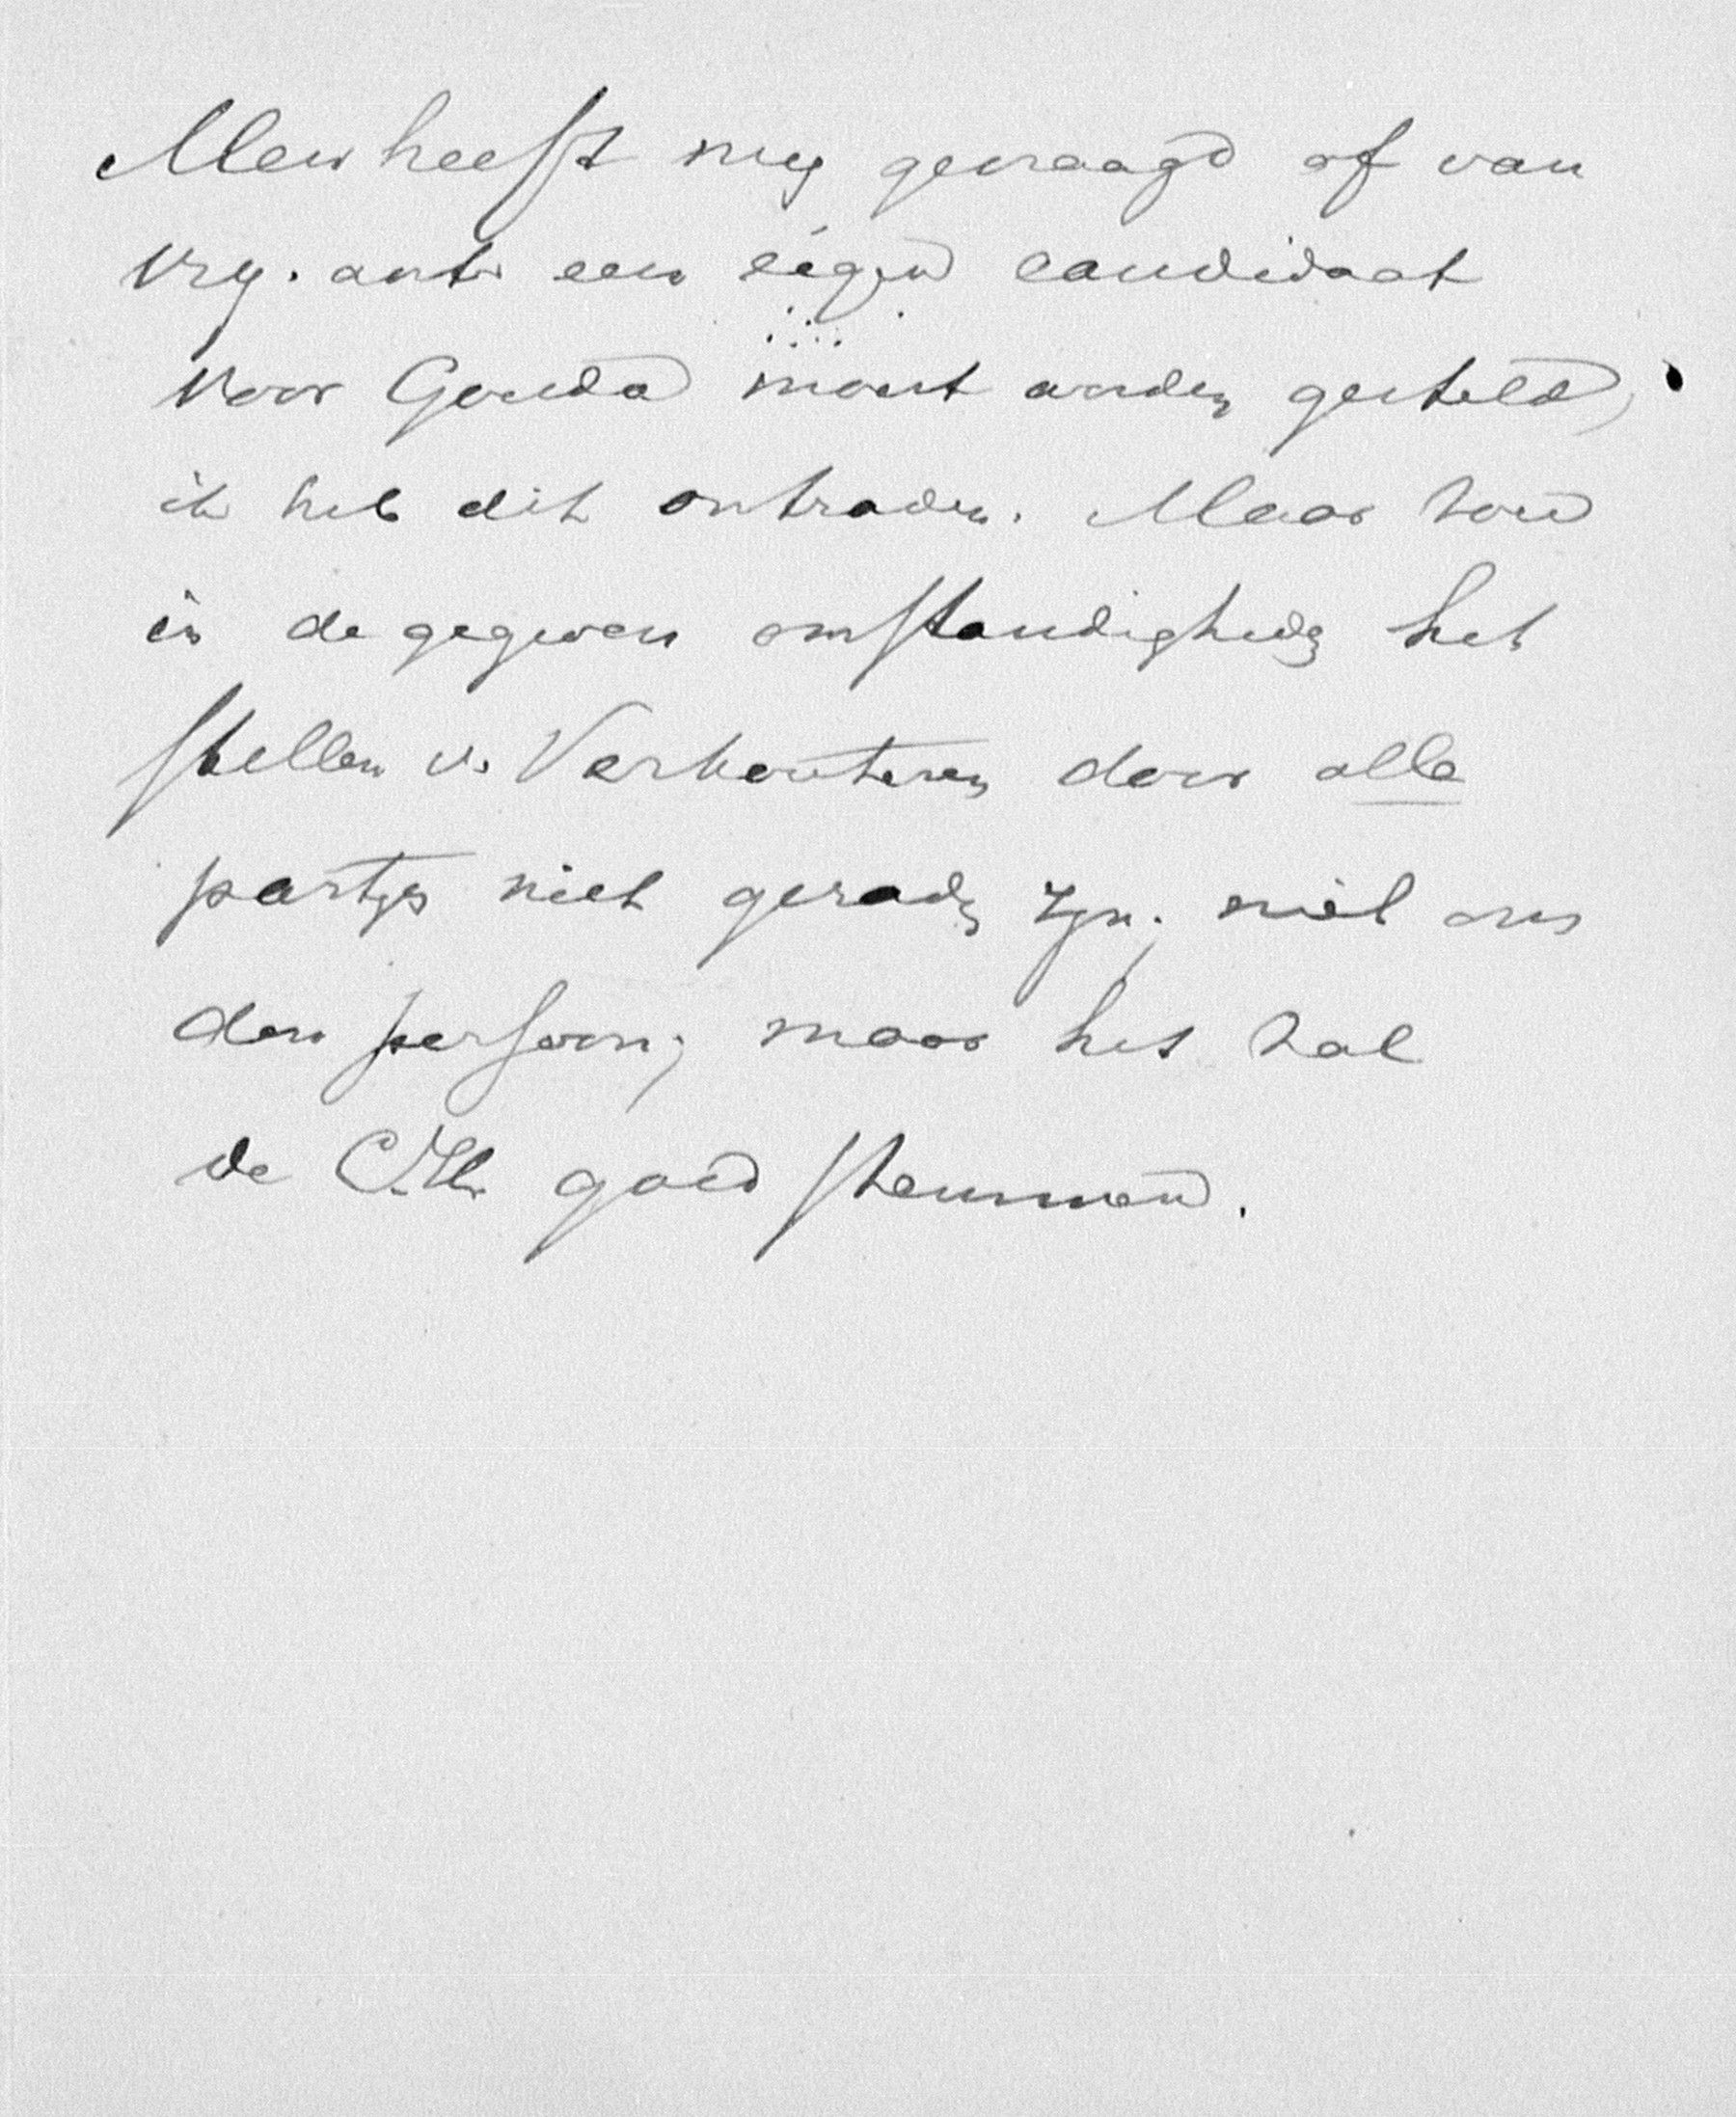 Men heeft mij gevraagd of van
vrij. anti een eigen candidaat
voor Gouda moest worden gesteld,
ik heb dit ontraden. Maar zou
in de gegeven omstandigheden het
stellen v. Verhouteren door alle
partijs niet geraden zijn; niet om
den persoon; maar het zal
de C.H. goed stemmen.